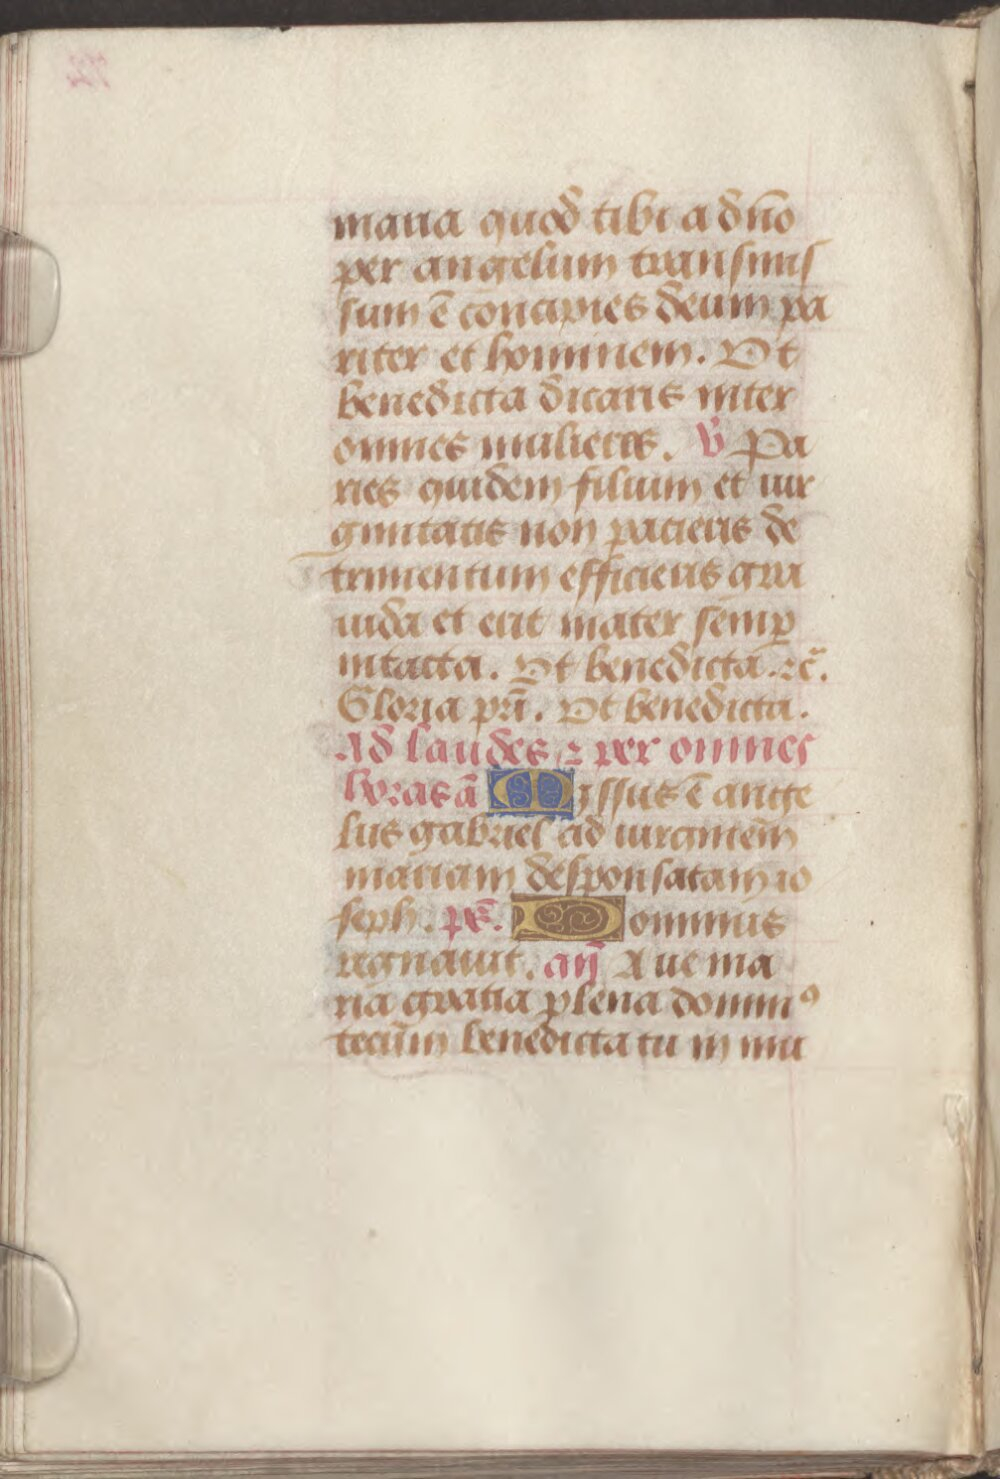 maria quod tibi a dño
per angelum transmis
sum ē concipies deum pa
riter et hominem. Ut
benedicta dicaris inter
omnes mulieres. V Pa
ries quidem filium et uir
ginitatis non pacieris de
trimentum efficieris gra
uida et erit mater semp
intacta. Ut benedicta. ⁊c̃.
Gloria pr̃i. Ut benedicta.
Ad laudes ⁊ per omnes
horas ā Missus ē ange
lus gabriel ad uirginem
mariam desponsatam io
seph. ps̃. Dominus
regnauit. añ Aue ma
ria gratia plena domin⁹
tecum benedicta tu in mu